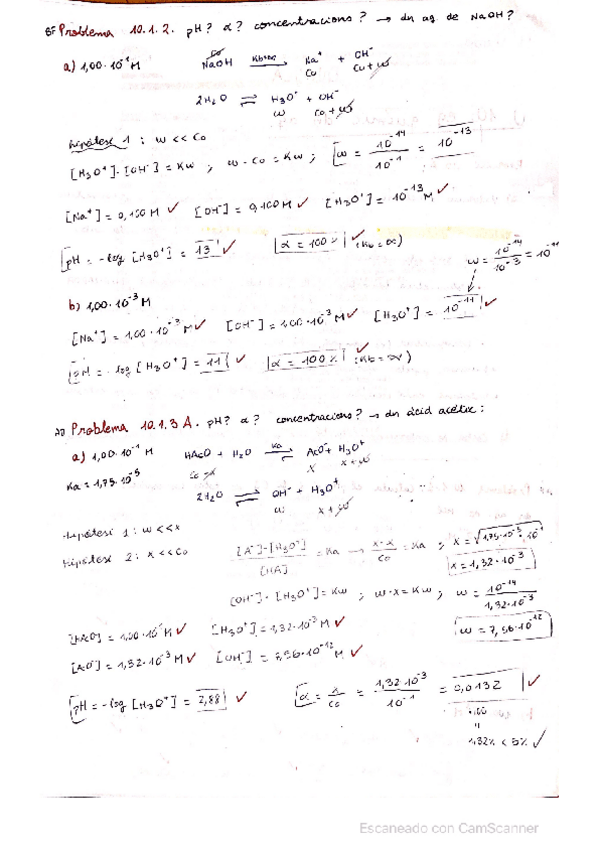 Problema 10.1.2. pH? α? concentracions? → dn aq. de NaOH?
a) 1,00·10⁻¹ M
Co
NaOH Kb=∞ → Na⁺ + OH⁻
Co Co+w
2H₂O ⇌ H₃O⁺ + OH⁻
w Co+w
Hipòtesi 1: w << Co
[H₃O⁺]·[OH⁻] = Kw ; w·Co = Kw ; w = 10⁻¹⁴ / 10⁻¹ = 10⁻¹³
[Na⁺] = 0,100 M ✓ [OH⁻] = 0,100 M ✓ [H₃O⁺] = 10⁻¹³ M ✓
pH = -log [H₃O⁺] = 13 ✓ α = 100% ✓ (Kb = ∞)
w = 10⁻¹⁴ / 10⁻³ = 10⁻¹¹
b) 1,00·10⁻³ M
[Na⁺] = 1,00·10⁻³ M ✓ [OH⁻] = 1,00·10⁻³ M ✓ [H₃O⁺] = 10⁻¹¹ ✓
pH = -log [H₃O⁺] = 11 ✓ α = 100% ✓ (Kb = ∞)
Problema 10.1.3 A. pH? α? concentracions? → dn àcid acètic:
a) 1,00·10⁻¹ M
HAcO + H₂O Ka ⇌ AcO⁻ + H₃O⁺
Ka = 1,75·10⁻⁵
Co-x x x+w
2H₂O ⇌ OH⁻ + H₃O⁺
w x+w
Hipòtesi 1: w << x
Hipòtesi 2: x << Co
[A⁻]·[H₃O⁺] / [HA] = Ka → x·x / Co = Ka ; x = √1,75·10⁻⁵·10⁻¹
x = 1,32·10⁻³
[OH⁻]·[H₃O⁺] = Kw ; w·x = Kw ; w = 10⁻¹⁴ / 1,32·10⁻³
w = 7,56·10⁻¹²
[HAcO] = 1,00·10⁻¹ M ✓ [H₃O⁺] = 1,32·10⁻³ M ✓
[AcO⁻] = 1,32·10⁻³ M ✓ [OH⁻] = 7,56·10⁻¹² M ✓
pH = -log [H₃O⁺] = 2,88 ✓ α = x / Co = 1,32·10⁻³ / 10⁻¹ = 0,0132 ✓
·100
1,32% < 5% ✓
Escaneado con CamScanner